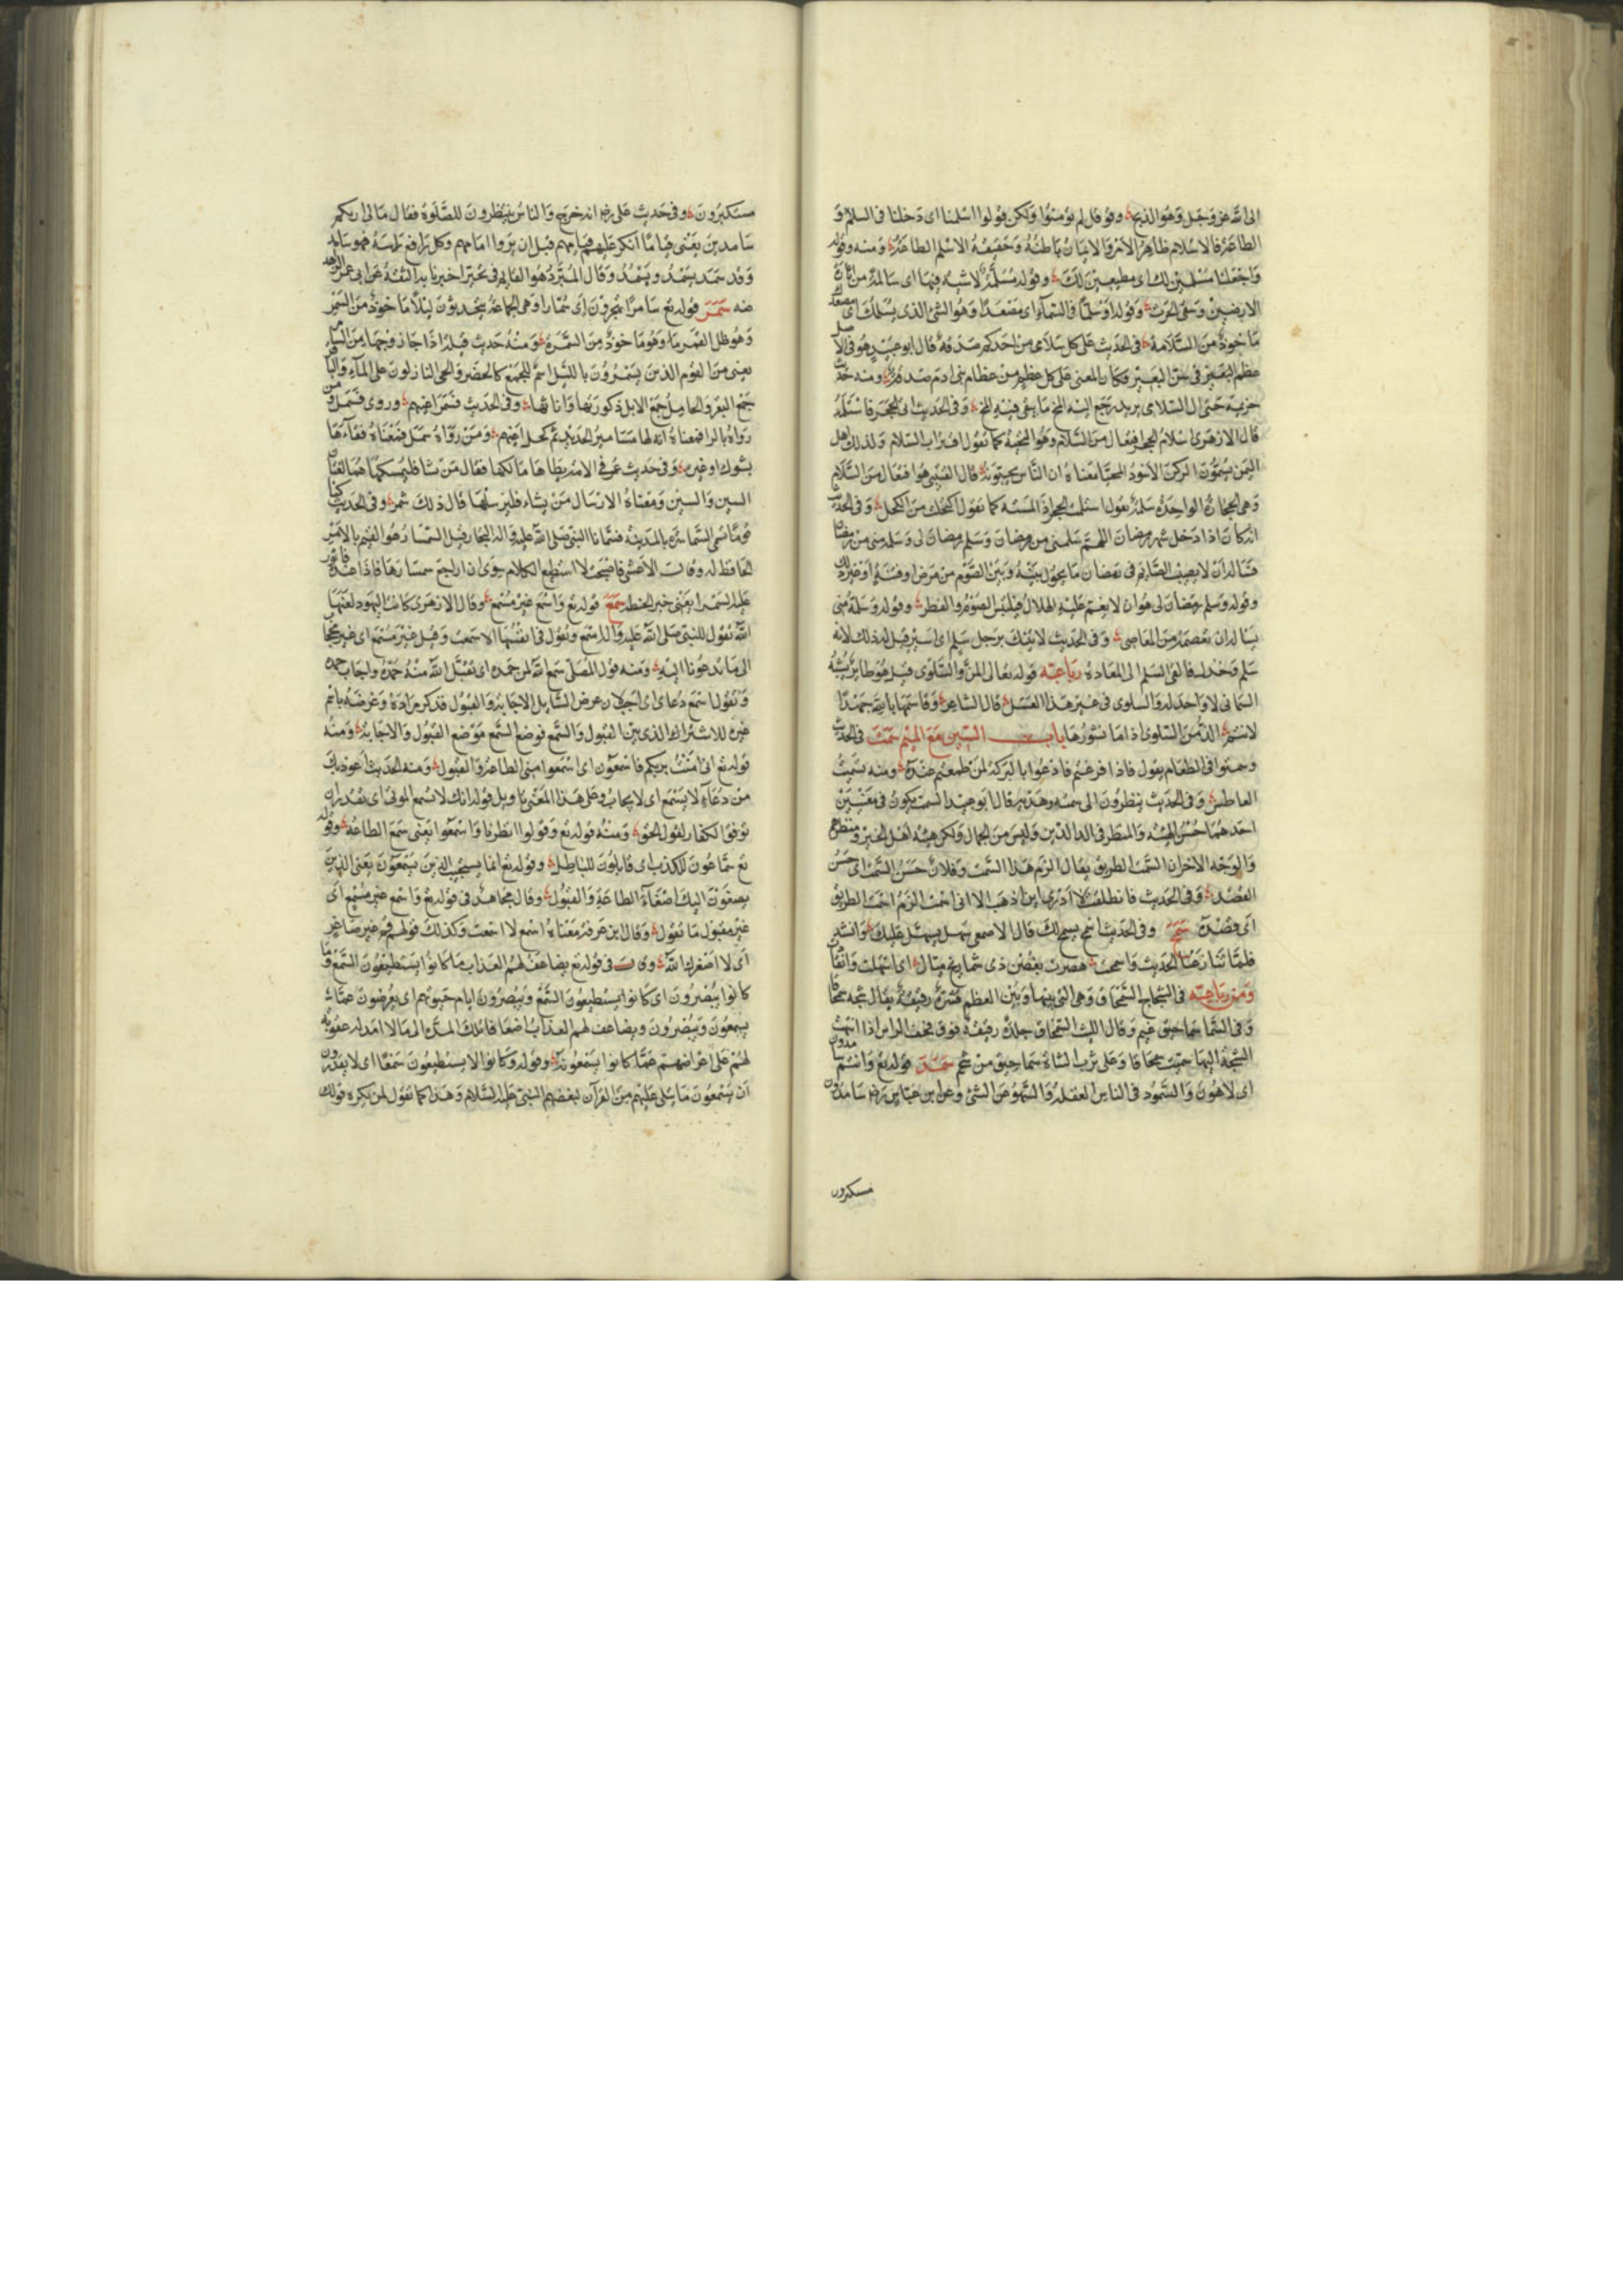 الى الله عز وجل وهو الذبح وقوله قل لم تؤمنوا ولكن قولوا اسلمنا اى دخلنا فى السلام و
الطاعة فالاسلام ظاهر الامر والايمان باطنه وحقيقة الاسلام الطاعة ومنه وقوله
واجعلنا مسلمين لك اى مطيعين لك وقوله مسلمة لا شية فيها اى سالمة من اثارة
الارضين وسقى الحرث وقوله او سلما فى السماء اى مصعدا وهو الشئ الذى يسلمك اى مصعدك
ماخوذ من السلامة فى الحديث على كل سلامى من احدكم صدقة قال ابو عبيد هو فى الاصل
عظم البعير فى فرسن البعير فكان المعنى على كل عظم من عظام بنى ادم صدقة ومنه حديث
خزيمة حتى ال السلامى يريد رجع اليه المخ ما بقى فيه المخ وفى الحديث اتى الحجر فاستلمه
قال الازهرى استلام الحجر افتعال من السلام وهو التحية كما تقول اقتراب السلام ولذلك اهل
اليمن يسمون الركن الاسود المحيا معناه ان الناس يحيونه قال القتيبى هو افتعال من السلام
وهى الحجارة الواحدة سلمة يقول استلمت الحجر اذا لمسته كما تقول اكتحلت من الكحل وفى الحديث
انه كان اذا دخل شهر رمضان اللهم سلمنى من رمضان وسلم رمضان لى وسلمه منى من رمضان
فتاله ان لا يصيب الصائم فى رمضان ما يحول بينه وبين الصوم من مرض او فتنة او غير ذلك
وقوله وسلم رمضان لى هو ان لا يغم عليه الهلال فيلتبس الصوم والفطر وقوله وسلمه منى
يسأله ان يعصمه من المعاصى وفى الحديث لاتينك برجل سلم اى اسير قيل له ذلك لانه
سلم وخذل فالقى السلم الى المعاداة رباعيه قوله تعالى المن والسلوى قيل هو طاير يشبه
السمانى لا واحد له والسلوى فى غير هذا العسل قال الشاعر وقاسمها بالله جهدا
لانتم الذ من السلوى اذا ما نشورها باب السين مع الميم سمت فى الحديث
وسمتوا فى الطعام يقول فاذا فرغتم فادعوا بالبركة لمن طعمتم عنده ومنه تسميت
العاطس وفى الحديث ينظرون الى سمته وهديه قال ابو عبيد السمت يكون فى معنيين
احدهما حسن الهيئة والمنظر فى الدين وليس من الجمال ولكن هيئة اهل الخير ومنظرهم
والوجه الاخر ان السمت الطريق يقال الزم هذا السمت وفلان حسن السمت اى حسن
القصد وفى الحديث فانطلقت لا ادرى اين اذهب الا انى اسمت الزم اسمت الطريق
اى قصده سمح وفى الحديث اسمح يسمح لك قال الاصمعى سهل يسهل عليك وانشد
فلما تنازعنا الحديث واسمحت هصرت بغصن ذى شماريخ ميال اى اسهلت وانقادت
ومن رباعيه فى الشجاج السمحاق وهى التى بينها وبين العظم قشرة رقيقة يقال شجه سمحاقا
وفى السما سماحيق غيم وقال الليث السمحاق جلدة رقيقة فوق قحف الراس اذا انتهت
الشجة اليها سميت سمحاقا وعلى ثرب الشاة سماحيق من شحم سمد قوله تع وانتم سامدون
اى لاهون والسمود فى الناس الغفلة والسهو عن الشئ وعن ابن عباس رض سامدون
مستكبرون
مستكبرون وفى حديث على رض انه خرج والناس ينتظرون للصلوة فقال مالى اريكم
سامدين يعنى قياما انكر عليهم قيامهم قبل ان يروا امامهم وكل رافع راسه فهو سامد
وقد سمد يسمد ويسمد وقال المبرد هو القايم فى تحير اخبرنا بذلك الثقة عن ابى عمر الزاهد
عنه سمر قوله تع سامرا تهجرون اى سمارا وهى الجماعة يتحدثون ليلا ماخوذ من السمر
وهو ظل القمر وهو ماخوذ من السمرة ومنه حديث قيلة اذا جاز زوجها من السامر
يعنى من القوم الذين يسمرون بالليل اسم للجمع كالحضر والحى النازلون على الماء والباقر
جمع البقر والحامل جمع الابل ذكورتها واناثها وفى الحديث فسمر اعينهم وروى فسمل ومن
رواه بالرا فمعناه انه لها مسامير الحديد ثم كحل اعينهم ومن رواه سمل فمعناه فقاها
بشوك او غيره وفى حديث عمر فى الامة يطاها مالكها فقال من شا فليمسكها هما لغتان
السين والشين ومعناه الارسال من يشاء فليرسلها قال ذلك شمر وفى الحديث كنا
قوما نسمى السماسرة بالمدينة فسمانا النبى صلى الله عليه واله التجار قيل السمسار هو القيم بالامر
الحافظ له وقال الاعشى فاصبحت لا استطيع الكلام سوى ان اراجع سمسارها فاذا
عليه لسمرا يعنى خبز الحنطة سمع قوله تع واسمع غير مسمع وقال الازهرى كانت اليهود لعنها
الله تقول للنبى صلى الله عليه واله اسمع وتقول فى انفسها لا سمعت وقيل غير مسمع اى غير مجاب
الى ما تدعونا اليه ومنه قول المصلى سمع الله لمن حمده اى تقبل الله منه حمده واجاب حمده
وتقول اسمع دعاى اى اجب لان غرض السائل الاجابة والقبول فذكر مراده وغرضه باسم
غيره للاشتراك الذى بين القبول والسمع فوضع السمع موضع القبول والاجابة ومنه
قوله تع انى امنت بربكم فاسمعون اى اسمعوا منى الطاعة والقبول ومنه الحديث اعوذ بك
من دعاء لا يسمع اى لا يجاب وعلى هذا المعنى تاويل قوله انك لا تسمع الموتى اى تقدر ان
توفق الكفار لقبول الحق ومنه قوله تع وقولوا انظرنا واسمعوا يعنى سمع الطاعة وقوله
تع سماعون للكذب اى قابلون للباطل وقوله تع انما يستجيب الذين يسمعون يعنى الذين
يصغون اليك اصغاء الطاعة والقبول وقال مجاهد فى قوله تع واسمع غير مسمع اى
غير مقبول ما تقول وقال ابن عرفة معناه اسمع لا اسمعت وكذلك قولهم قم غير صاغر
اى لا اصغرك الله وقال فى قوله تع يضاعف لهم العذاب ما كانوا يستطيعون السمع وما
كانوا يبصرون اى كانوا يستطيعون السمع ويبصرون ايام حيوتهم اى يعرضون عما
يسمعون ويبصرون ويضاعف لهم العذاب اضعافا تلك المدة الى ما لا امد له عقوبة
لهم على اعراضهم عما كانوا يسمعونه وقوله وكانوا لا يستطيعون سمعا اى لا يقدرون
ان يسمعون ما يتلى عليهم من القرآن لبغضهم النبى عليه السلام وهذا كما تقول لمن تكره قولك